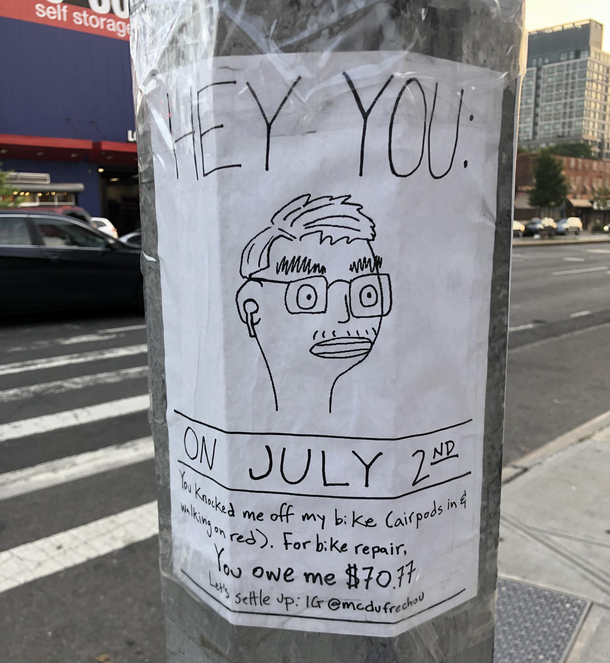 self storage
HEY YOU:
ON JULY 2ND
You knocked me off my bike (airpods in &
walking on red). For bike repair,
You owe me $70.77
Let's settle up: IG @mcdufrechou